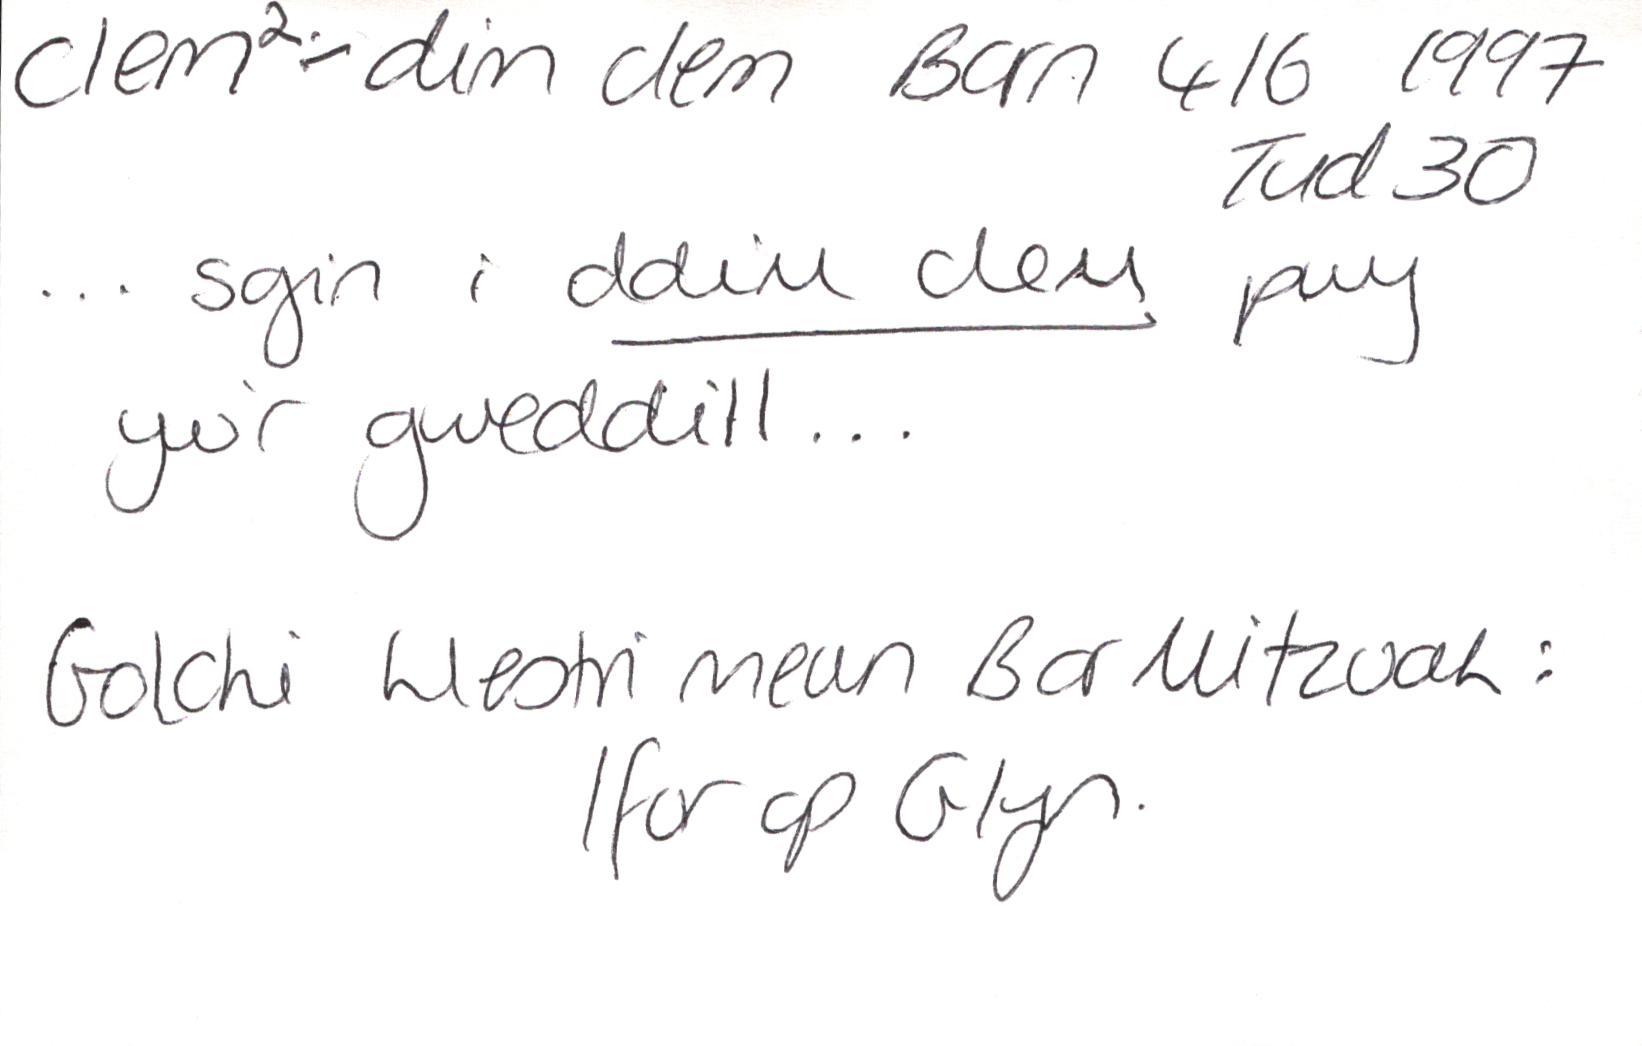 clem²:- dim clem Barn 416 1997
Tud 30
... sgin i ddim clem pwy
yw'r gweddill...
Golchi Llestri mewn Bar Mitzvah:
Ifor ap Glyn.